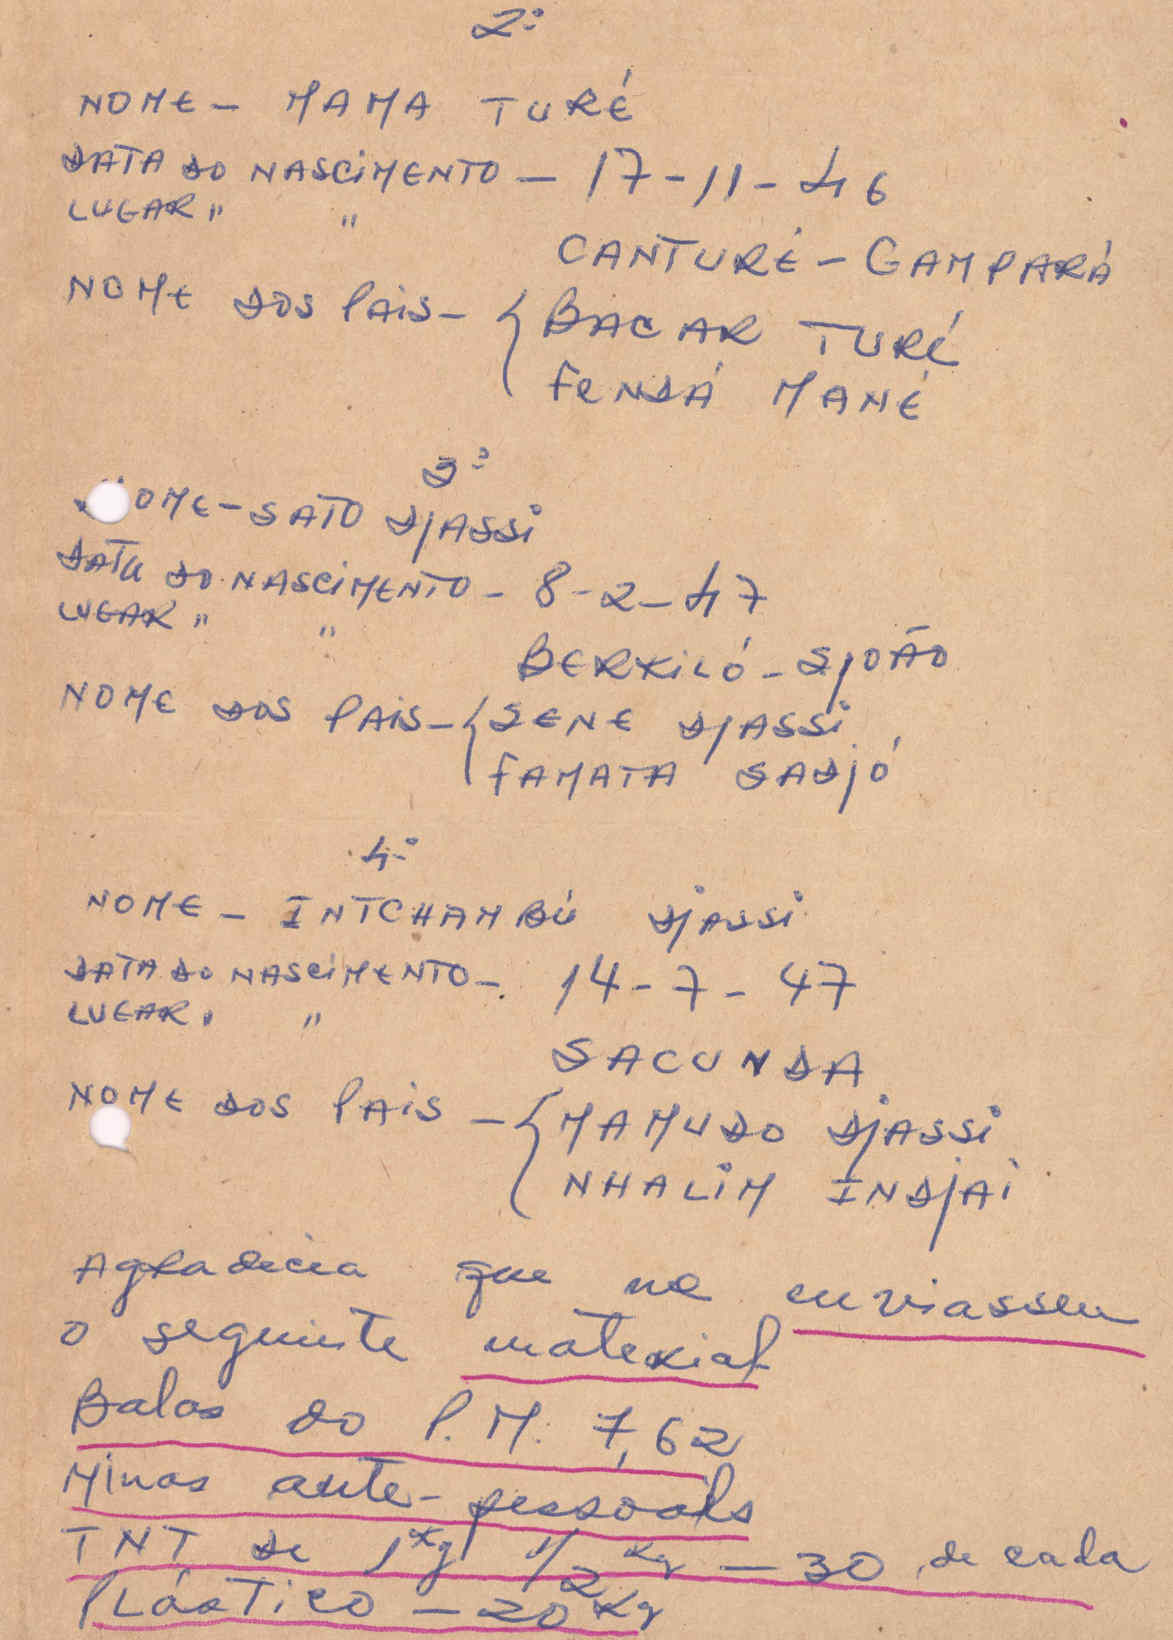 2º
NOME - MAMA TURÉ
DATA DO NASCIMENTO - 17-11-46
LUGAR " "
CANTURÉ - GAMPARÁ
NOME DOS PAIS - { BACAR TURÉ
FENDÁ MANÉ
3º
NOME - SATO DJASSI
DATA DO NASCIMENTO - 8-2-47
LUGAR " "
BERKILÓ - SJOÃO
NOME DOS PAIS - { SENE DJASSI
FAMATA SADJÓ
4º
NOME - INTCHAMBÚ DJASSI
DATA DO NASCIMENTO - 14-7-47
LUGAR " "
SACUNDA
NOME DOS PAIS - { MAMUDO DJASSI
NHALIM INDJAI
Agradicia que me enviassem
o seguinte material
Balas do P.M. 7,62
Minas ante-pessoais
TNT de 1 Kg 1/2 Kg - 30 de cada
PLÁSTICO - 20 Kg